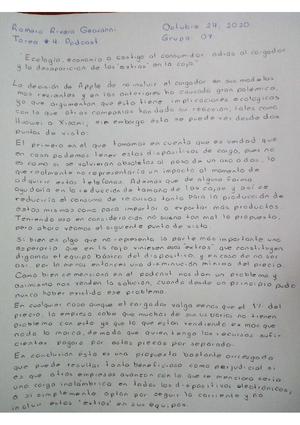 Romero Rivera Geovanni Octubre 27, 2020
Tarea #4 Podcast Grupo: 07
"Ecología, economía o castigo al consumidor: adiós al cargador
y la desaparición de los "extras" en la caja"
La decisión de Apple de no incluir el cargador en sus modelos
más recientes y en los anteriores ha causado gran polémica,
ya que argumentan que ésto tiene implicaciones ecológicas
con lo que otras compañías han dado su reacción, tales como
Huawei o Xiaomi, sin embargo ésto se puede ver desde dos
puntos de vista:
El primero en el que tomamos en cuenta que es verdad que
en casa podemos tener estos dispositivos de carga, pues no
es como si se volvieran obsoletos al paso de uno o dos, lo
que realmente no representaría un impacto al momento de
adquirir estos teléfonos. Además que de alguna forma
ayudaría en la reducción de tamaño de las cajas y así se
reduciría el consumo de recursos tanto para la producción de
estas mismas como para importar o exportar más productos.
Teniendo eso en consideración no suena tan mal la propuesta,
pero ahora veamos el siguiente punto de vista.
Si bien es algo que no representa la parte más importante uno
esperaría que en la caja vinieran esos extras que constituyen
digamos el equipo básico del dispositivo, y en caso de no ser
así, por lo menos entonces una disminución mínima del precio.
Como bien se mencionó en el podcast nos dan un problema y
asimismo nos venden la solución, cuando desde un principio pudo
nunca haber existido ese problema.
En cualquier caso aunque el cargador valga menos que el 1% del
precio, la empresa sabe que muchos de sus usuarios no tienen
problema con esto ya que lo que están vendiendo es más que
nada la marca, de modo que quien tenga los recursos suficientes
pagará por estas piezas por separado.
En conclusión ésta es una propuesta bastante arriesgada
que puede resultar tanto beneficiosa como perjudicial si
es que otras empresas avanzan con lo que se menciona sería
una carga inalámbrica en todos los dispositivos electrónicos,
o si simplemente optan por seguir la corriente y no
incluir estos "extras" en sus equipos.